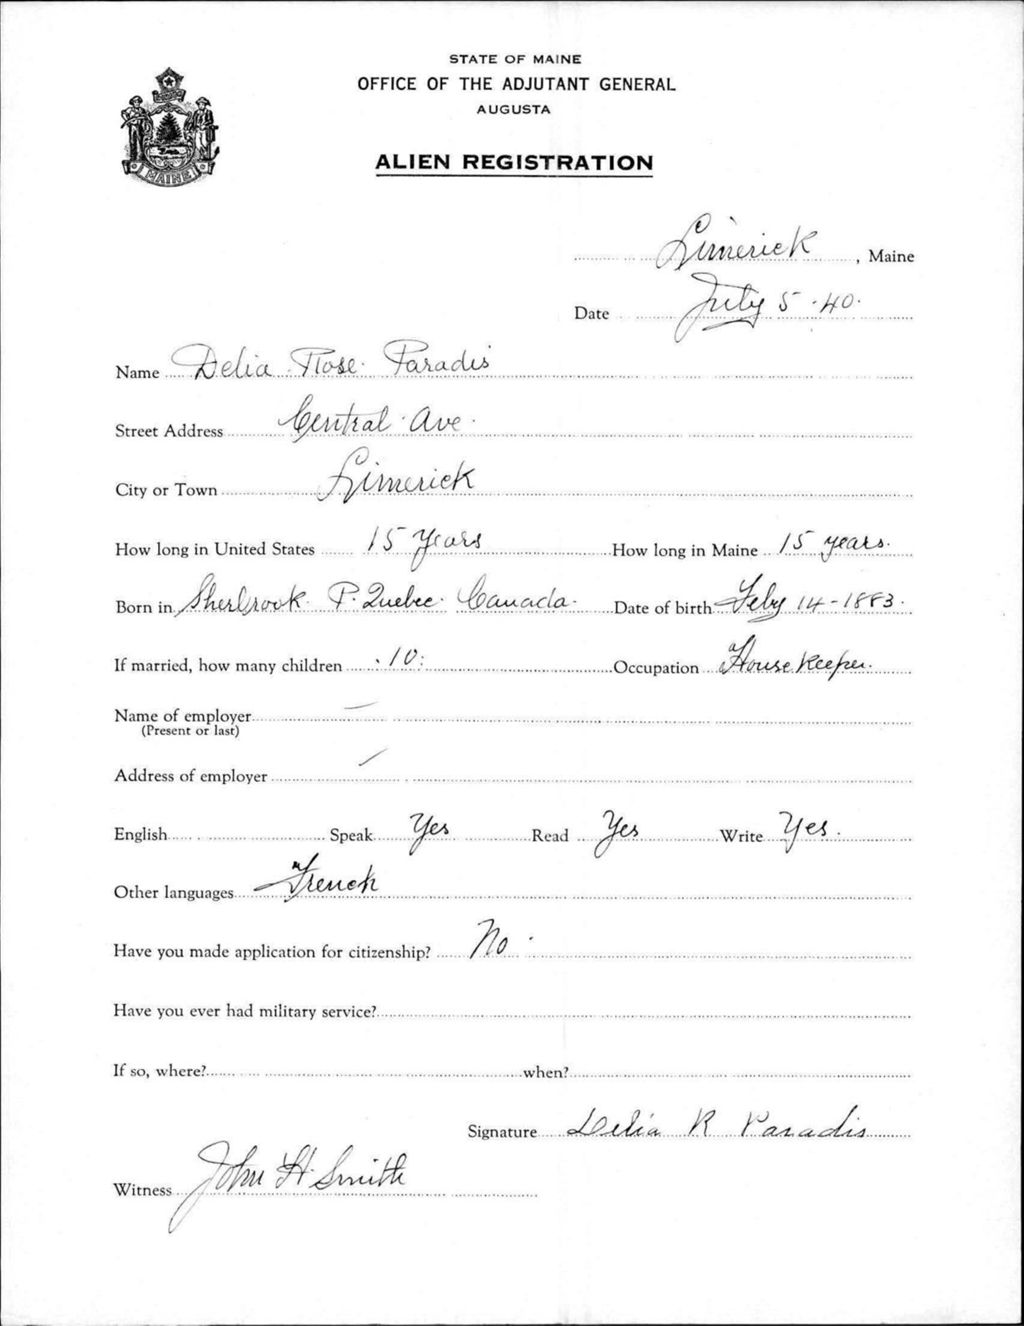 STATE OF MAINE
OFFICE OF THE ADJUTANT GENERAL
AUGUSTA
ALIEN REGISTRATION
MAINE
Limerick, Maine
Date July 5-40.
Name Delia Rose Paradis
Street Address Central Ave.
City or Town Limerick
How long in United States 15 Years How long in Maine 15 years.
Born in Sherbrook P. Quebec. Canada. Date of birth Feby 14-1883.
If married, how many children 10. Occupation House Keeper.
Name of employer —
(Present or last)
Address of employer —
English Speak Yes Read Yes Write Yes.
Other languages French
Have you made application for citizenship? No.
Have you ever had military service?
If so, where? when?
Signature Delia R Paradis
Witness John H. Smith